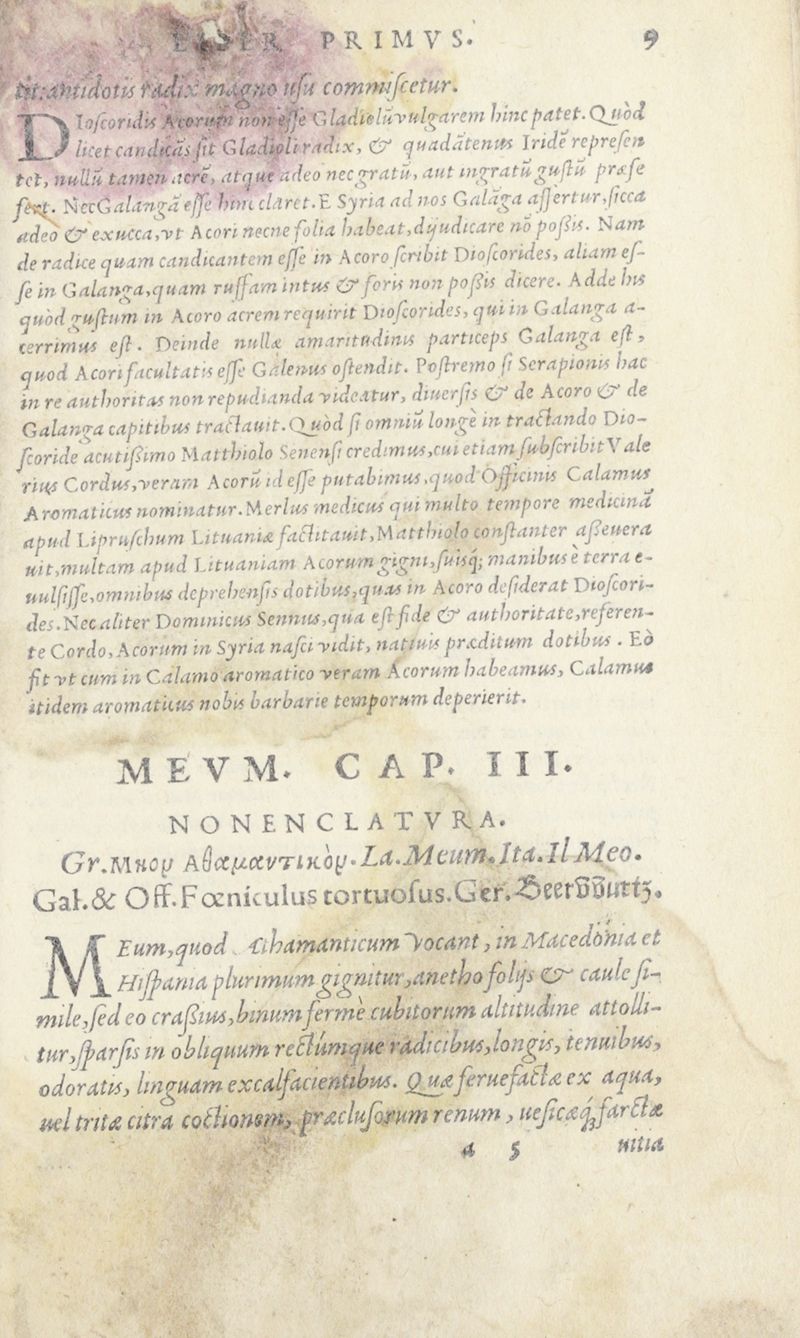 LIBER PRIMVS. 9
tit: antidotis radix magno uſu commiſcetur.
DIoſcoridis Acorum non eſſe Gladiolũ vulgarem hinc patet. Quòd
licet candicãs ſit Gladioli radix, & quadãtenus Iridẽ repreſen
tet, nullũ tamen acrẽ, atque adeo nec gratũ, aut ingratũ guſtũ præſe
fert. Nec Galangã eſſe hinc claret. E Syria ad nos Galãga aſſertur, ſicca
adeò & exucca, vt Acori necne folia habeat, dijudicare nõ poßis. Nam
de radice quam candicantem eſſe in Acoro ſcribit Dioſcorides, aliam eſ-
ſe in Galanga, quam ruffam intus & foris non poßis dicere. Adde his
quòd guſtum in Acoro acrem requirit Dioſcorides, qui in Galanga a-
cerrimus eſt. Deinde nullæ amaritudinis particeps Galanga eſt,
quod Acori facultatis eſſe Galenus oſtendit. Poſtremo ſi Serapionis hac
in re authoritas non repudianda videatur, diuerſis & de Acoro & de
Galanga capitibus tractauit. Quòd ſi omniũ longè in tractando Dio-
ſcoride acutißimo Matthiolo Senenſi credimus, cui etiam ſubſcribit Vale
rius Cordus, veram Acorũ id eſſe putabimus, quod Officinis Calamus
Aromaticus nominatur. Merlus medicus qui multo tempore medicinã
apud Lipruſchum Lituaniæ factitauit, Matthiolo conſtanter aßeuera
uit, multam apud Lituaniam Acorum gigni, ſuisq́; manibus è terra e-
uulſiſſe, omnibus deprehenſis dotibus, quas in Acoro deſiderat Dioſcori-
des. Nec aliter Dominicus Sennus, qua eſt fide & authoritate, referen-
te Cordo, Acorum in Syria naſci vidit, natiuis præditum dotibus. Eò
fit vt cum in Calamo aromatico veram Acorum habeamus, Calamus
itidem aromaticus nobis barbarie temporum deperierit.
MEVM. CAP. III.
NONENCLATVRA.
Gr. Μηον Αθαμαντικὸν. La. Meum. Ita. Il Meo.
Gal. & Off. Fœniculus tortuoſus. Ger. Beerwurtz.
MEum, quod Athamanticum vocant, in Macedonia et
Hiſpania plurimum gignitur, anetho folijs & caule ſi-
mile, ſed eo craßius, binum fermè cubitorum altitudine attolli-
tur, ſparſis in obliquum rectúmque radicibus, longis, tenuibus,
odoratis, linguam excalfacientibus. Quæ feruefactæ ex aqua,
uel tritæ citra coctionem, præcluſorum renum, ueſicæq́; farctæ
a 5 uitia